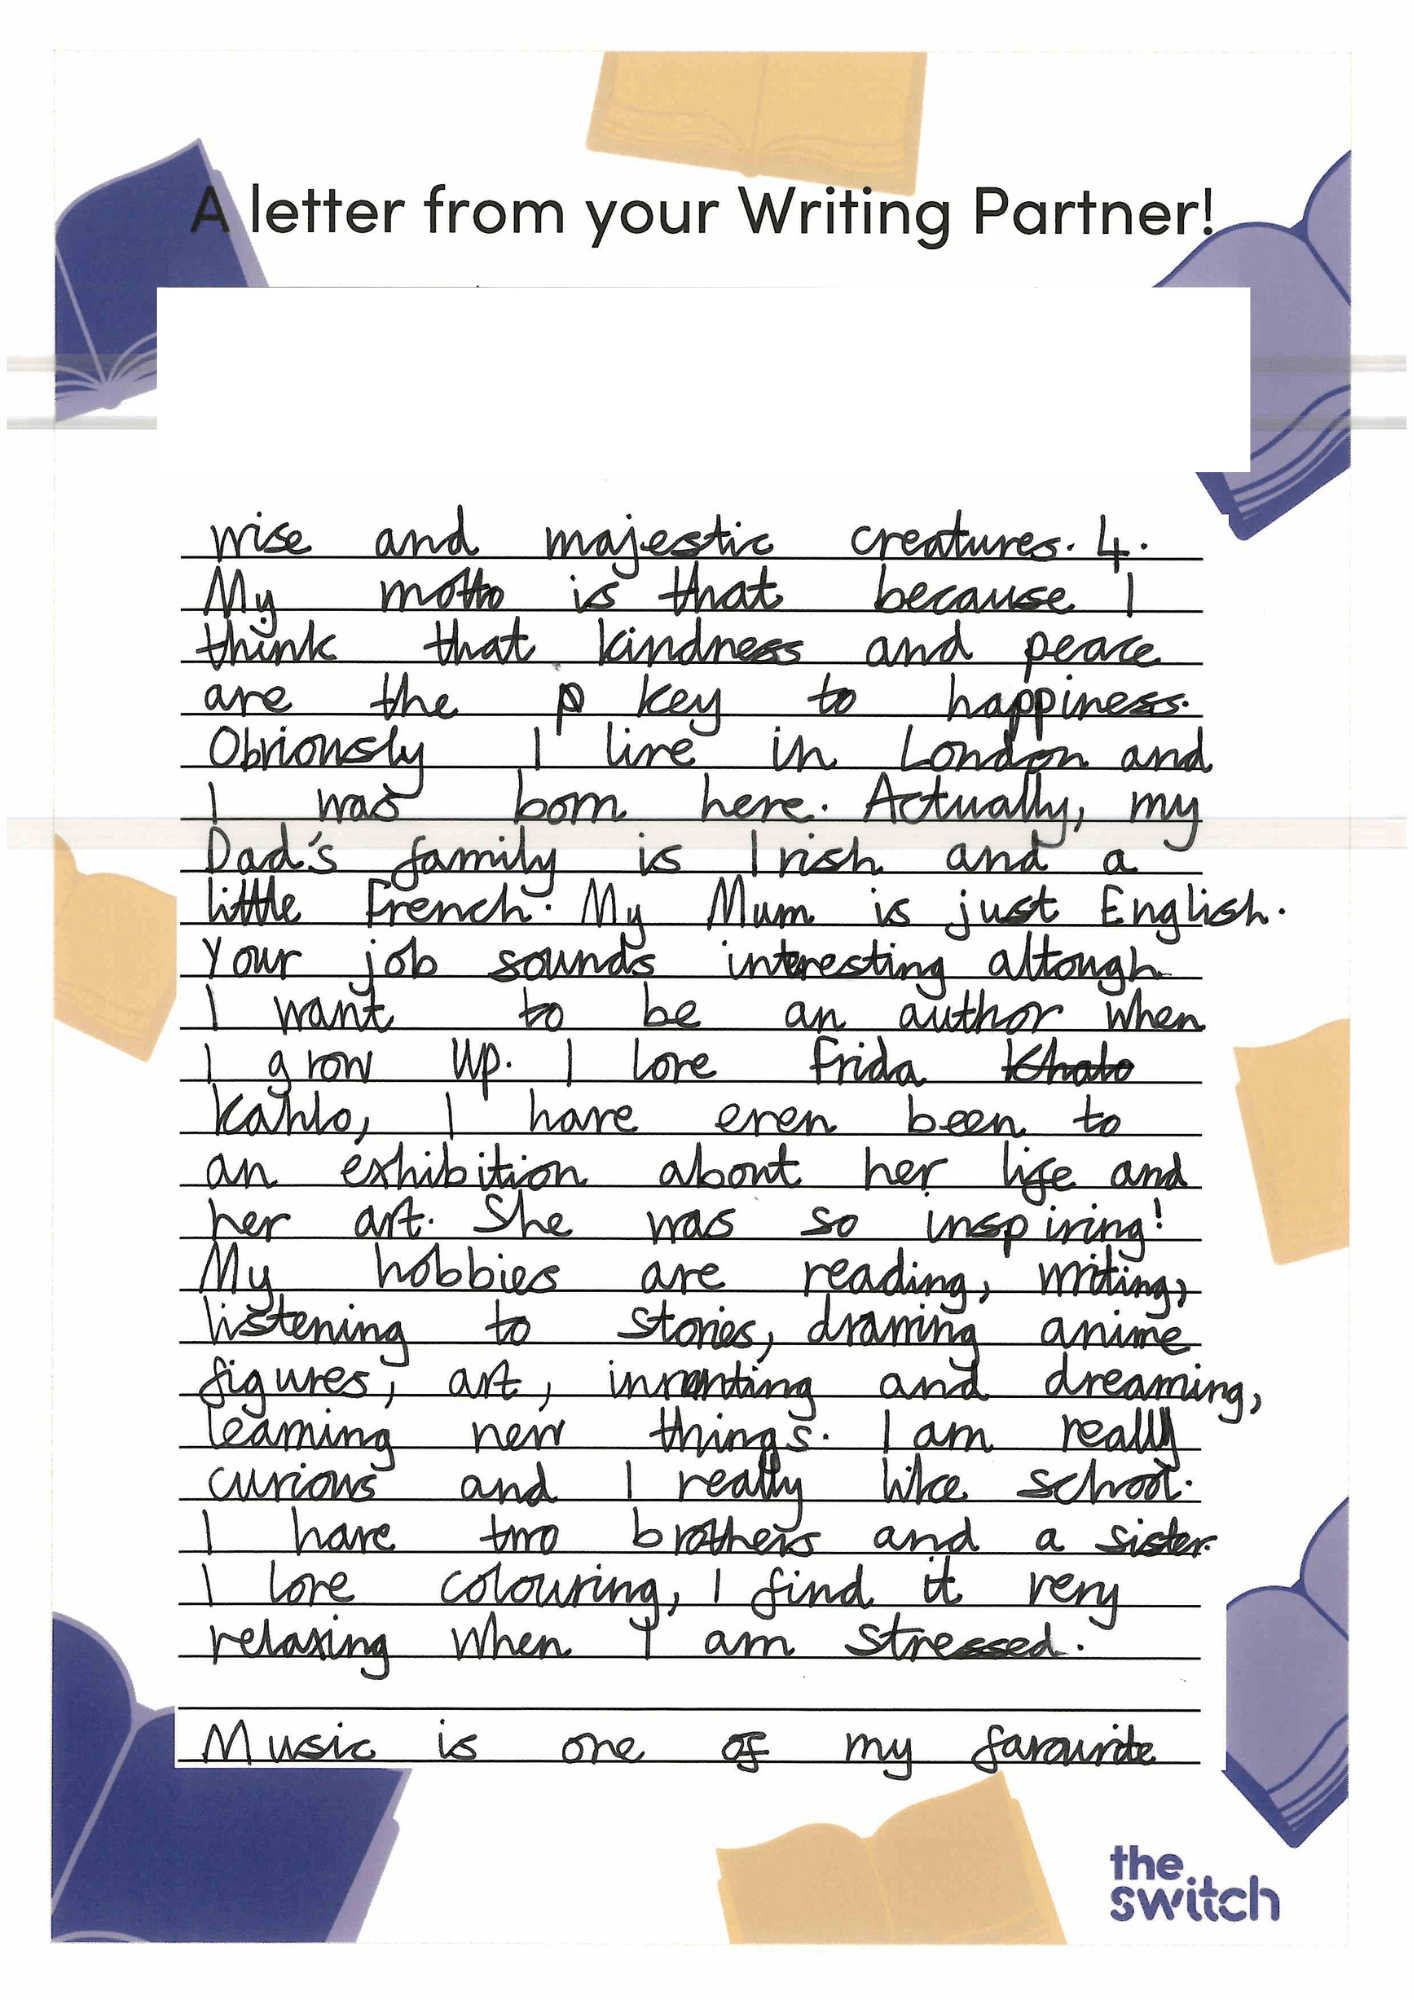 A letter from your Writing Partner!
wise and majestic creatures. 4.
My motto is that because I
think that kindness and peace
are the p key to happiness.
Obviously I live in London and
I was born here. Actually, my
Dad's family is Irish and a
little French. My Mum is just English.
Your job sounds interesting altough
I want to be an author when
I grow up. I love Frida Khalo
Kahlo, I have even been to
an exhibition about her life and
her art. She was so inspiring!
My hobbies are reading, writing,
listening to stories, drawing anime
figures, art, and dreaming,
learning new things. I am really
curious and I really like school.
I have two brothers and a sister.
I love colouring, I find it very
relaxing when I am stressed.
Music is one of my favourite
the
switch